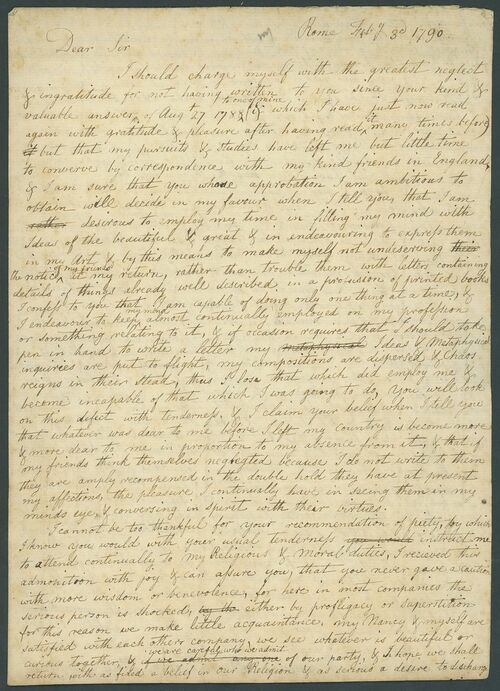 Rome Feby 3d 1790
Dear Sir
I should charge myself with the greatest neglect
& ingratitude for not having written to you since your kind &
valuable answer to one of mine of Aug 27 which I have just now read
again with gratitude & pleasure after having read it many times before
it but that my pursuits & studies have left me but little time
to converse by correspondence with my kind friends in England,
& I am sure that you whose approbation I am ambitious to
obtain will decide in my favour when I tell you that I am
rather desirous to employ my time in filling my mind with
Ideas of the beautiful & great & in endeavouring to express them
in my Art & by this means to make myself not undeserving their
the notice of my friends at my return, rather than trouble them with letters containing
details of things already well described, in a profusion of printed books
I confess to you that I am capable of doing only one thing at a time, &
I endeavour to keep my mind almost continually employed on my profession
or something relating to it, & if occasion requires that I should take
pen in hand to write a letter my metaphysical Ideas & Metaphysical
inquiries are put to flight, my compositions are dispersed & Chaos
reigns in their stead, thus I lose that which did employ me &
become incapable of that which I was going to do, you will look
on this defect with tenderness, & I claim your belief when I tell you
that whatever was dear to me before I left my Country is become more
& more dear to me in proportion to my absence from it, & that if
my friends think themselves neglected because I do not write to them
they are amply recompensed in the double hold they have at present
my affections, the pleasure I continually have in seeing them in my
minds eye, & conversing in spirit with their virtues.
I cannot be too thankful for your recommendation of piety, by which
I know you would with your usual tenderness you would instruct me
to attend continually to my Religious & Moral duties, I recieved this
admonition with joy & can assure you, that you never gave a caution
with more wisdom or benevolence, for here in most companies the
serious person is shocked, by the either by profligacy or Superstition
for this reason we make little acquaintance, my Nancy & myself are
satisfied with each others company, we see whatever is beautiful or
curious together, & we are careful who we admit if we admit any one of our party, & I hope we shall
return with as fixed a belief in our Religion & as serious a desire to discharge